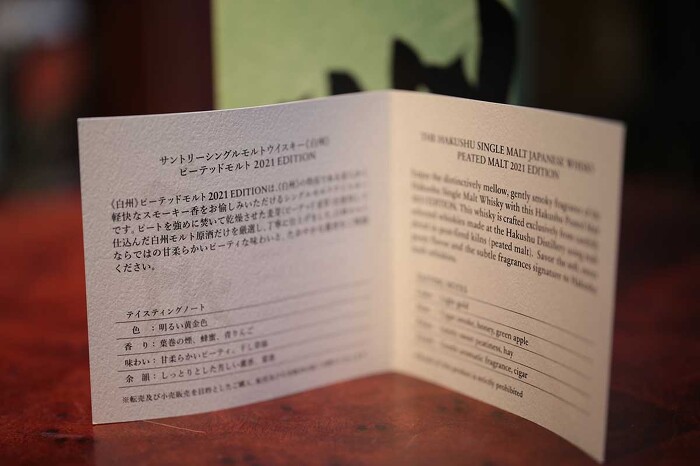 サントリーシングルモルトウイスキー《白州》
ピーテッドモルト 2021 EDITION
《白州》ピーテッドモルト2021 EDITIONは、《白州》の
軽快なスモーキー香をお愉しみいただけるシングルモルト
です。ピートを強めに焚いて乾燥させた麦芽
仕込んだ白州モルト原酒だけを厳選し、丁寧に
ならではの甘柔らかいピーティな味わいと、
ください。
テイスティングノート
色 ：明るい黄金色
香 り：葉巻の煙、蜂蜜、青りんご
味わい：甘柔らかいピーティ、干し
余 韻：しっとりとした芳しい
※転売及び小売販売を目的としたご購入、
THE HAKUSHU SINGLE MALT JAPANESE WHISKY
PEATED MALT 2021 EDITION
Enjoy the distinctively mellow, gently smoky fragrance of
Hakushu Single Malt Whisky with this Hakushu Peated Malt
2021 EDITION. This whisky is crafted exclusively from
made at the Hakushu Distillery using malt
dried in peat-fired kilns (peated malt). Savor the soft, sweet
peaty flavor and the subtle fragrances signature to Hakushu
TASTING NOTES
Light gold
Cigar smoke, honey, green apple
sweet peatiness, hay
aromatic fragrance, cigar
product is strictly prohibited